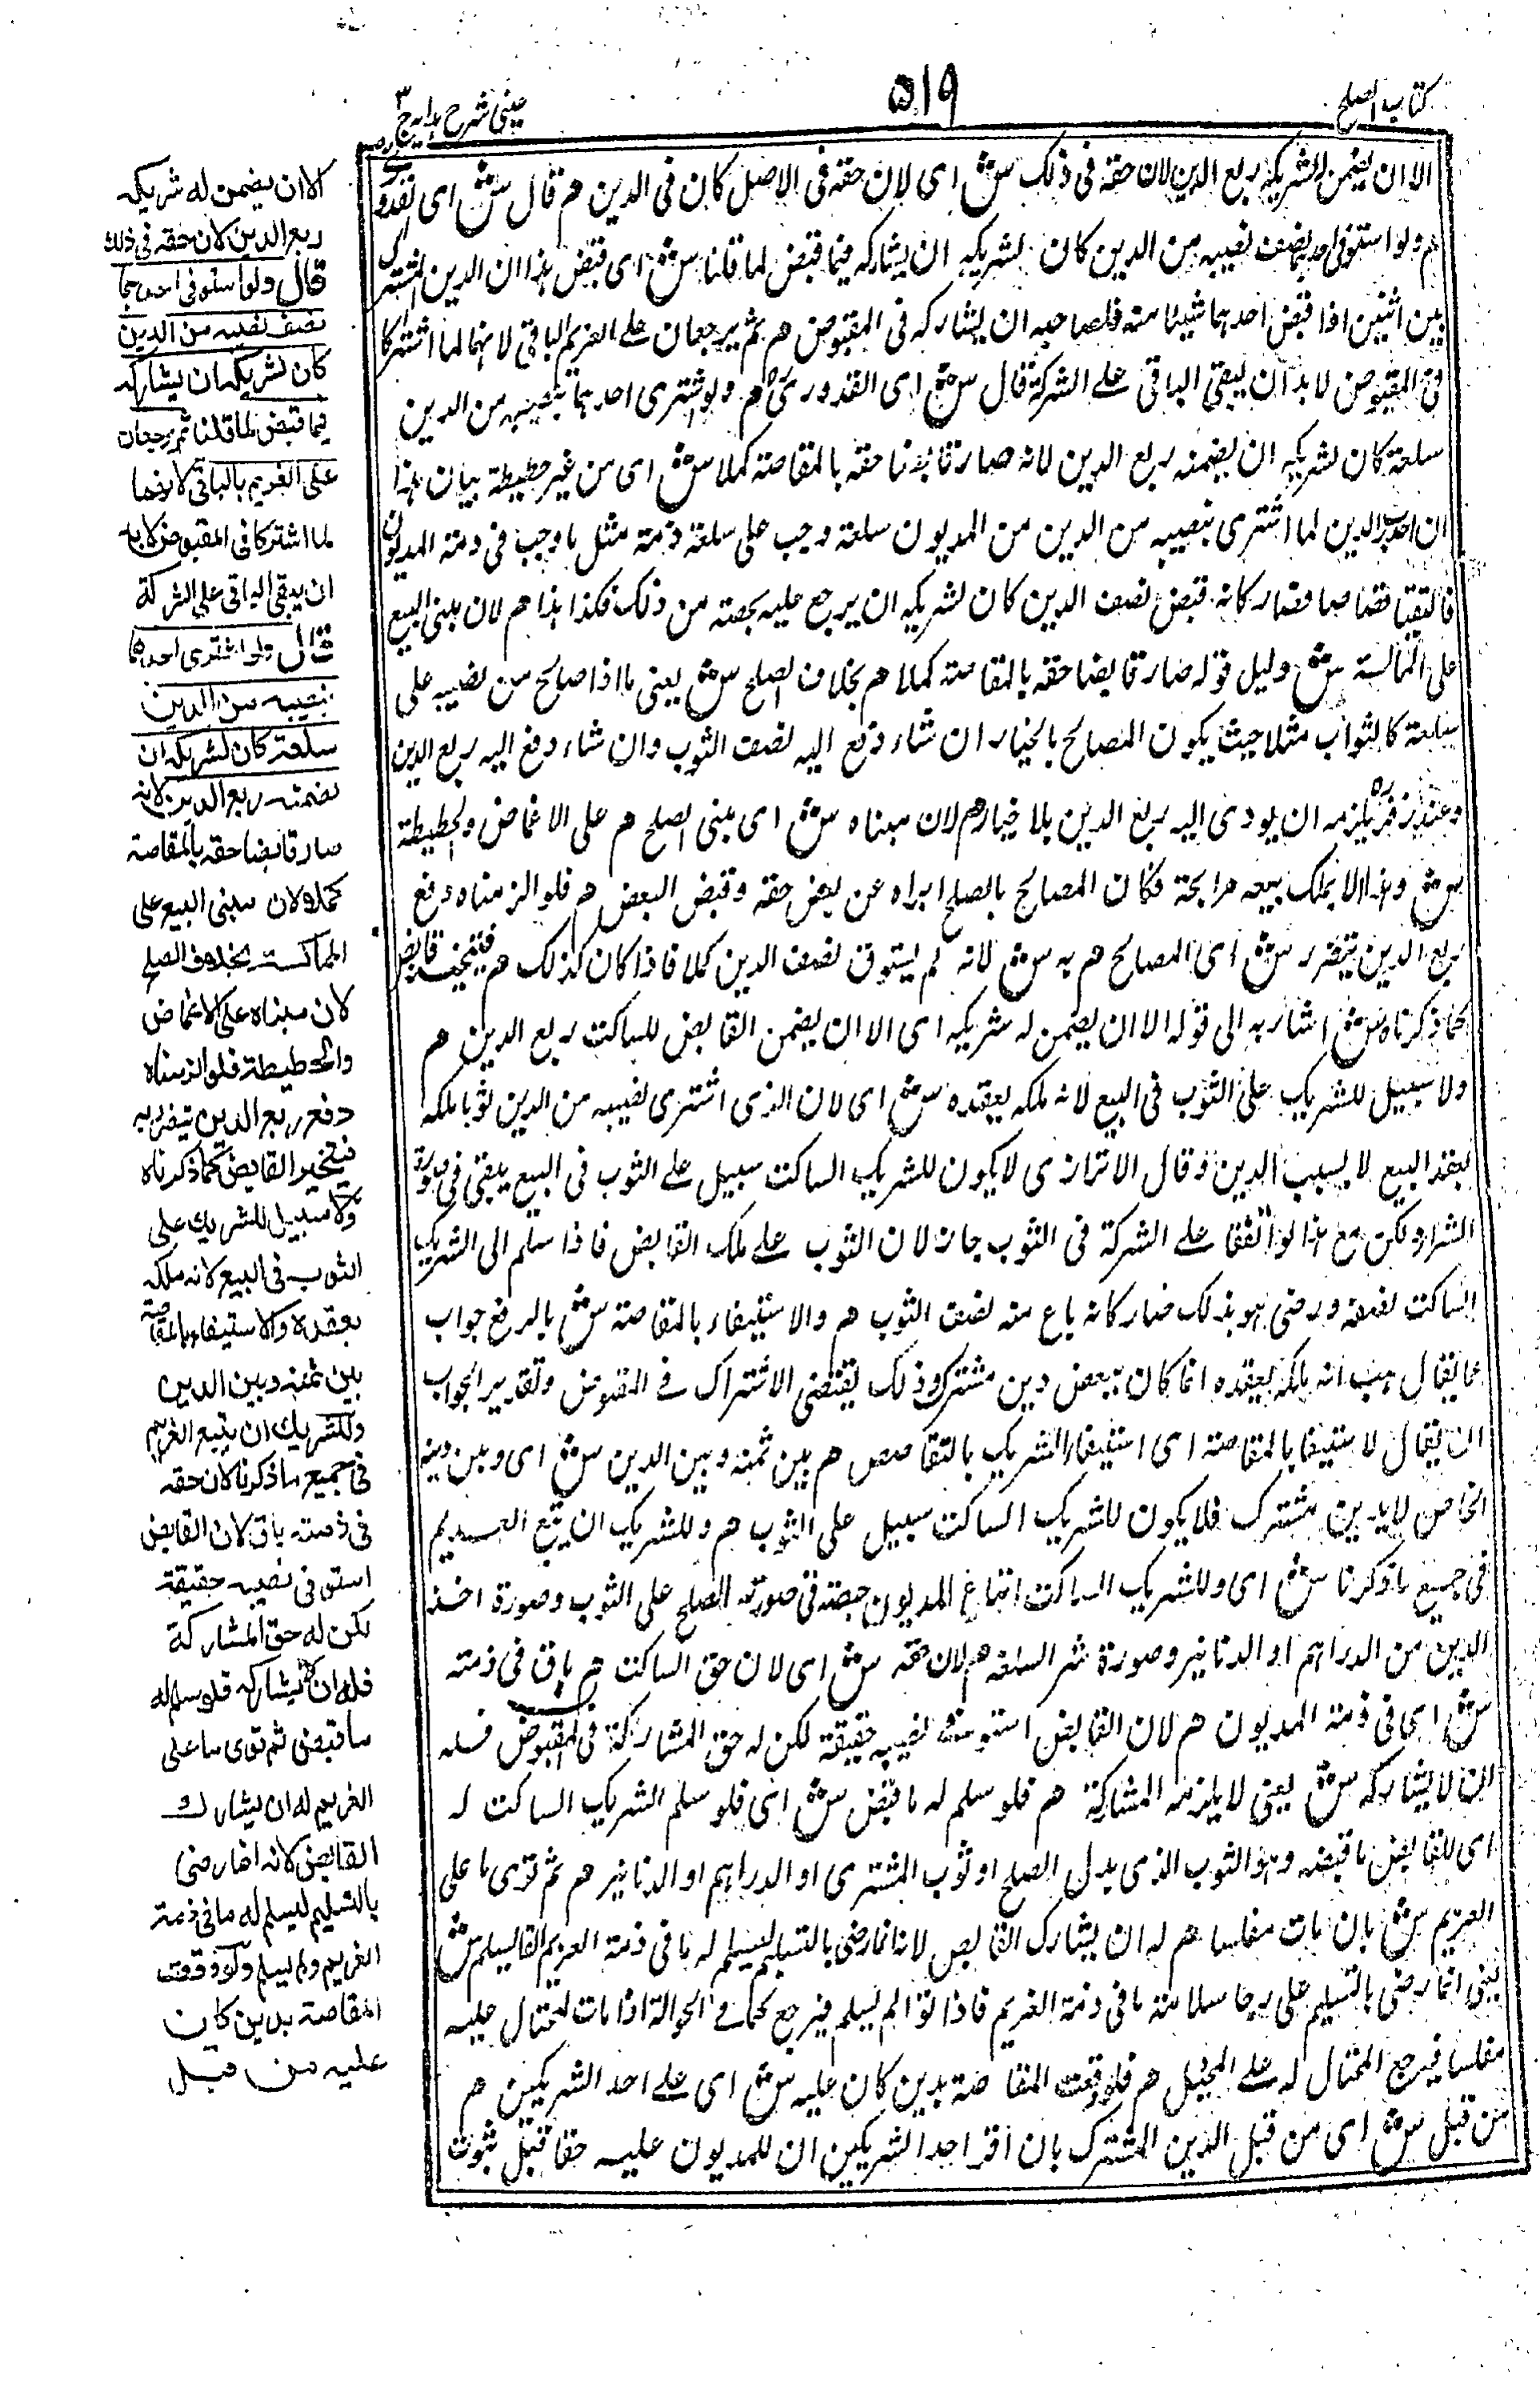 كتاب الصلح
٥١٩
عینی شرح ہدایہ ج ٣
الا ان یضمن لہ شریکہ ربع الدین لان حقہ فی ذلک ش ای لان حقہ فی الاصل کان فی الدین هم قال ش ای القدوری
هم ولو استوفی احدہما نصف نصیبہ من الدین کان لشریکہ ان یشارکہ فیما قبض لما قلنا ش ای قبض ہذا ان الدین المشترک
بین اثنین اذا قبض احدہما شیئا منہ فلصاحبہ ان یشارکہ فی المقبوض هم ثم یرجعان علے الغریم بالباقی لانہما لما اشترکا
فی المقبوض لا بد ان یبقی الباقی علے الشرکۃ قال ش ای القدوری هم ولو اشتری احدہما بنصیبہ من الدین
سلعۃ کان لشریکہ ان یضمنہ ربع الدین لانہ صار قابضا حقہ بالمقاصۃ کملا ش ای من غیر حطیطۃ بیان ہذا
ان احد ربی الدین لما اشتری بنصیبہ من الدین من المدیون سلعۃ وجب علی سلعۃ ذمتہ مثل ما وجب فی ذمۃ المدیون
فالتقیا قصاصا فصار کانہ قبض نصف الدین کان لشریکہ ان یرجع علیہ بحصتہ من ذلک فکذا ہذا هم لان مبنی البیع
علی المماکسۃ ش دلیل قولہ صار قابضا حقہ بالمقاصۃ کملا هم بخلاف الصلح ش یعنی ما اذا صالح من نصیبہ علی
سلعۃ کالثواب مثلا حیث یکون المصالح بالخیار ان شاء دفع الیہ نصف الثوب وان شاء دفع الیہ ربع الدین
وعند زفر یلزمہ ان یودی الیہ ربع الدین بلا خیار هم لان مبناہ ش ای مبنی الصلح هم علی الاغماض والحطیطۃ
ش ولہذا لا یملک بیعہ مرابحۃ فکان المصالح بالصلح ابراہ عن بعض حقہ وقبض البعض هم فلو الزمناہ دفع
ربع الدین یتضرر ش ای المصالح هم بہ ش لانہ لم یستوف نصف الدین کملا فاذا کان کذلک هم فیتخیر القابض
کما ذکرناہ ش اشار بہ الی قولہ الا ان یضمن لہ شریکہ ای الا ان یضمن القابض للساکت ربع الدین هم
ولا سبیل للشریک علی الثوب فی البیع لانہ ملکہ بعقدہ ش ای لان الذی اشتری نصیبہ من الدین ثوبا ملکہ
بعقد البیع لا بسبب الدین وقال الاترازی لا یکون للشریک الساکت سبیل علے الثوب فی البیع یعنی فی صورۃ
الشراء ولکن مع ہذا لو اتفقا علے الشرکۃ فی الثوب جاز لان الثوب علے ملک القابض فاذا سلم الی الشریک
الساکت نصفہ ورضی ہو بذلک صار کانہ باع منہ نصف الثوب هم والاستیفاء بالمقاصۃ ش بالرفع جواب
عما یقال ہب انہ ملکہ بعقدہ انما کان ببعض دین مشترک وذلک یقتضی الاشتراک فے المقبوض وتقریر الجواب
ان یقال الاستیفا بالمقاصۃ ای استیفاء الشریک بالتقاصص هم بین ثمنہ وبین الدین ش ای وبین دینہ
الخاص لا بدین مشترک فلا یکون للشریک الساکت سبیل علی الثوب هم وللشریک ان یتبع الغریم
فی جمیع ما ذکرنا ش ای وللشریک الساکت اتباع المدیون حصتہ فی صورۃ الصلح علی الثوب وصورۃ اخذ
الدین من الدراہم او الدنانیر وصورۃ شر السلعۃ هم لان حقہ ش ای لان حق الساکت هم باق فی ذمتہ
ش ای فی ذمۃ المدیون هم لان القابض استوفی نصیبہ حقیقۃ لکن لہ حق المشارکۃ فی المقبوض فلہ
ان لا یشارکہ ش یعنی لا یلزمہ المشارکۃ هم فلو سلم لہ ما قبض ش ای فلو سلم الشریک الساکت لہ
ای للقابض ما قبضہ وہو الثوب الذی بدل الصلح او ثوب المشتری او الدراہم او الدنانیر هم ثم توی ما علی
الغریم ش بان مات مفلسا هم لہ ان یشارک القابض لانہ انما رضی بالتسلیم لیسلم لہ ما فی ذمۃ الغریم ولم یسلم ش
یعنی انما رضی بالتسلیم علی رجا سلامۃ ما فی ذمۃ الغریم فاذا توا لم یسلم فیرجع کما فے الحوالۃ اذا مات المحتال علیہ
مفلسا فیرجع المحتال لہ علے المحیل هم فلو وقعت المقاصۃ بدین کان علیہ ش ای علے احد الشریکین هم
من قبل ش ای من قبل الدین المشترک بان اقر احد الشریکین ان للمدیون علیہ حقا قبل ثبوت
الا ان یضمن لہ شریکہ
ربع الدین لان حقہ فی ذلك
قال ولو استوفی احدہما
نصف نصیبہ من الدین
کان لشریکہ ان یشارکہ
فیما قبض لما قلنا ثم یرجعان
علی الغریم بالباقی لانہما
لما اشترکا فی المقبوض لا بد
ان یبقی الباقی علی الشرکۃ
قال ولو اشتری احدہما
بنصیبہ من الدین
سلعۃ کان لشریکہ ان
یضمنہ ربع الدین لانہ
صار قابضا حقہ بالمقاصۃ
کملا ولان مبنی البیع علی
المماکسۃ بخلاف الصلح
لان مبناہ علی الاغماض
والحطیطۃ فلو الزمناہ
دفع ربع الدین یتضرر بہ
فیتخیر القابض کما ذکرناہ
ولا سبیل للشریك علی
الثوب فی البیع لانہ ملکہ
بعقدہ والاستیفاء بالمقاصۃ
بین ثمنہ وبین الدین
وللشریك ان یتبع الغریم
فی جمیع ما ذکرنا لان حقہ
فی ذمتہ باق لان القابض
استوفی نصیبہ حقیقۃ
لکن لہ حق المشارکۃ
فلہ ان لا یشارکہ فلو سلم لہ
ما قبض ثم توی ما علی
الغریم لہ ان یشارك
القابض لانہ انما رضی
بالتسلیم لیسلم لہ ما فی ذمۃ
الغریم ولم یسلم ولو وقعت
المقاصۃ بدین کان
علیہ من قبل